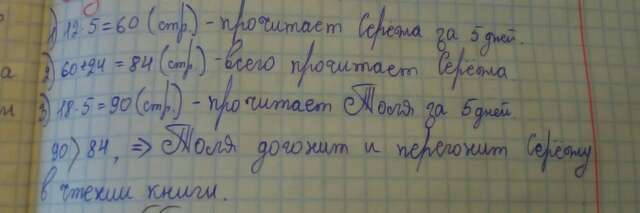 1) 12·5=60 (стр.) - прочитает Серёжа за 5 дней.
2) 60+24=84 (стр.) - всего прочитает Серёжа
3) 18·5=90 (стр.) - прочитает Толя за 5 дней.
90>84, ⇒ Толя догонит и перегонит Серёжу
в чтении книги.